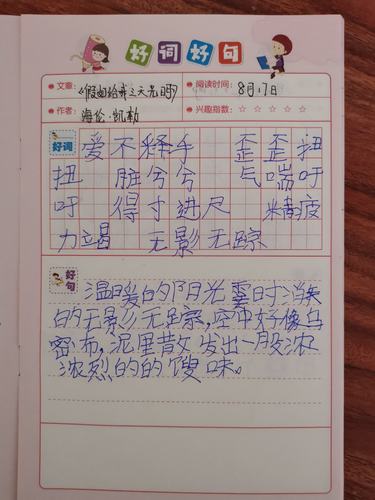 好词好句
文章：《假如给我三天光明》 阅读时间：8月17日
作者：海伦·凯勒 兴趣指数：☆☆☆☆☆
好词 爱不释手 歪歪扭
扭 脏兮兮 气喘吁
吁 得寸进尺 精疲
力竭 无影无踪
好句 温暖的阳光霎时消失
的无影无踪，空中好像乌
密布，泥里散发出一股浓
浓烈的的馊味。